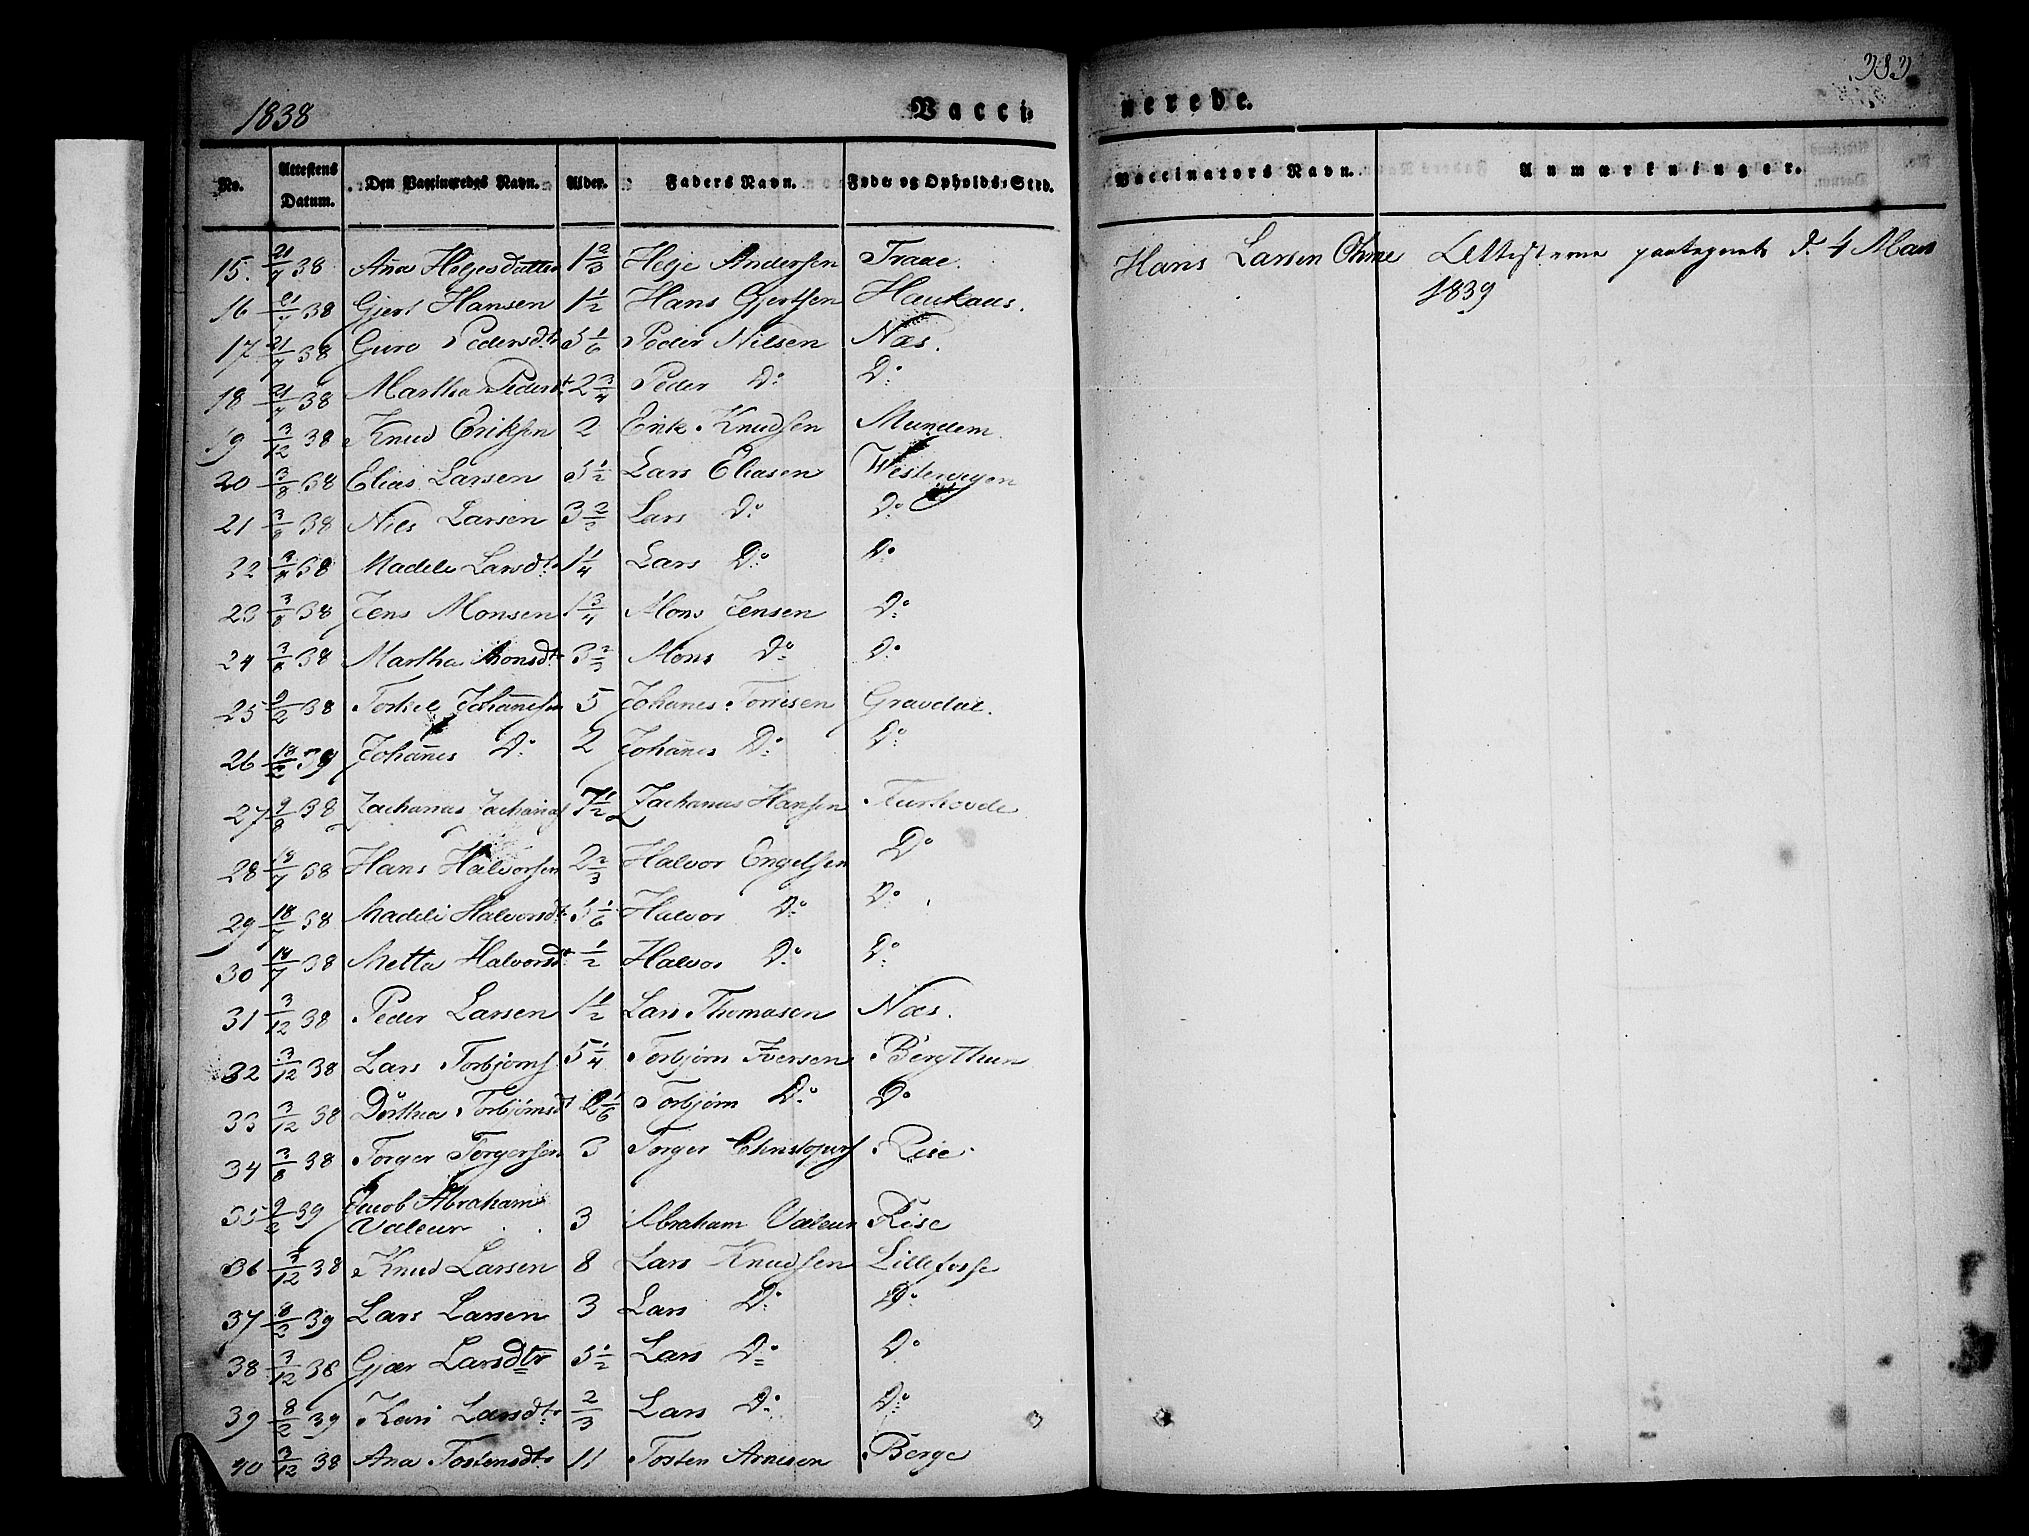 1838 Vacci⸗
No. Attestens Datum. Den Vaccineredes Navn. Alder. Faders Navn. Føde⸗ og Opholds⸗Sted.
15. 21/7 38 Ana Helgesdatter 1 2/3 Helje Andersen Traae.
16 21/7 38 Gjert Hansen 1 1/2 Hans Gjertsen Haukaas.
17 21/7 38 Guro Pedersdtr 5 1/6 Peder Nilsen Næs.
18 21/7 38 Martha Pedersdt 2 3/4 Peder Do Do
19 3/12 38 Knud Eriksen 2 Erik Knudsen Mundem
20 3/8 38 Elias Larsen 5 1/2 Lars Eliasen
21 3/8 38 Niels Larsen 3 Lars Do Do
22 3/8 38 Madeli Larsdtr 1 1/4 Lars Do Do
23 3/8 38 Jens Monsen 1 3/4 Mons Jensen Do
24 3/8 38 Martha Monsdtr 3 2/3 Mons Do Do
25 9/2 38 Torkel Johannesen 5 Johanes Torresen Gravdal.
26 18/2 39 Johannes Do 2 Johannes Do Do
27 9/8 38 Zacharias Zacharias 7 1/2 Zacharias Hansen
28 18/7 38 Hans Halvorsen 2 2/3 Halvor Engelsen Do
29 18/7 38 Madeli Halvorsdtr 5 1/6 Halvor Do Do
30 18/7 38 Metta Halvorsdtr 1/2 Halvor Do Do
31 3/12 38 Peder Larsen 1 1/2 Lars Thomasen Næs.
32 3/12 38 Lars Torbjørns 5 1/4 Torbjørn Iversen Bergthun
33 3/12 38 Dorthea Torbjørnsdt 2 1/6 Torbjørn Do Do
34 3/8 38 Torger Torgersen 3 Torger Rise
35 9/2 39 Jacob Abrahams
Valeur 3 Abraham Valeur Rise
36 3/12 38 Knud Larsen 8 Lars Knudsen Lillefosse
37 8/2 39 Lars Larsen 3 Lars Do Do
38 3/12 38 Gjær Larsdtr 5 1/2 Lars Do Do
39 8/2 39 Kari Larsdtr 2/3 Lars Do Do
40 3/12 38 Ana Tostensdtr 11 Tosten Arnesen Berge
383
nerede.
Vaccinators Navn. Anmærkninger.
Hans Larsen Ohme Attesterne paategnede d. 4 Mars
1839